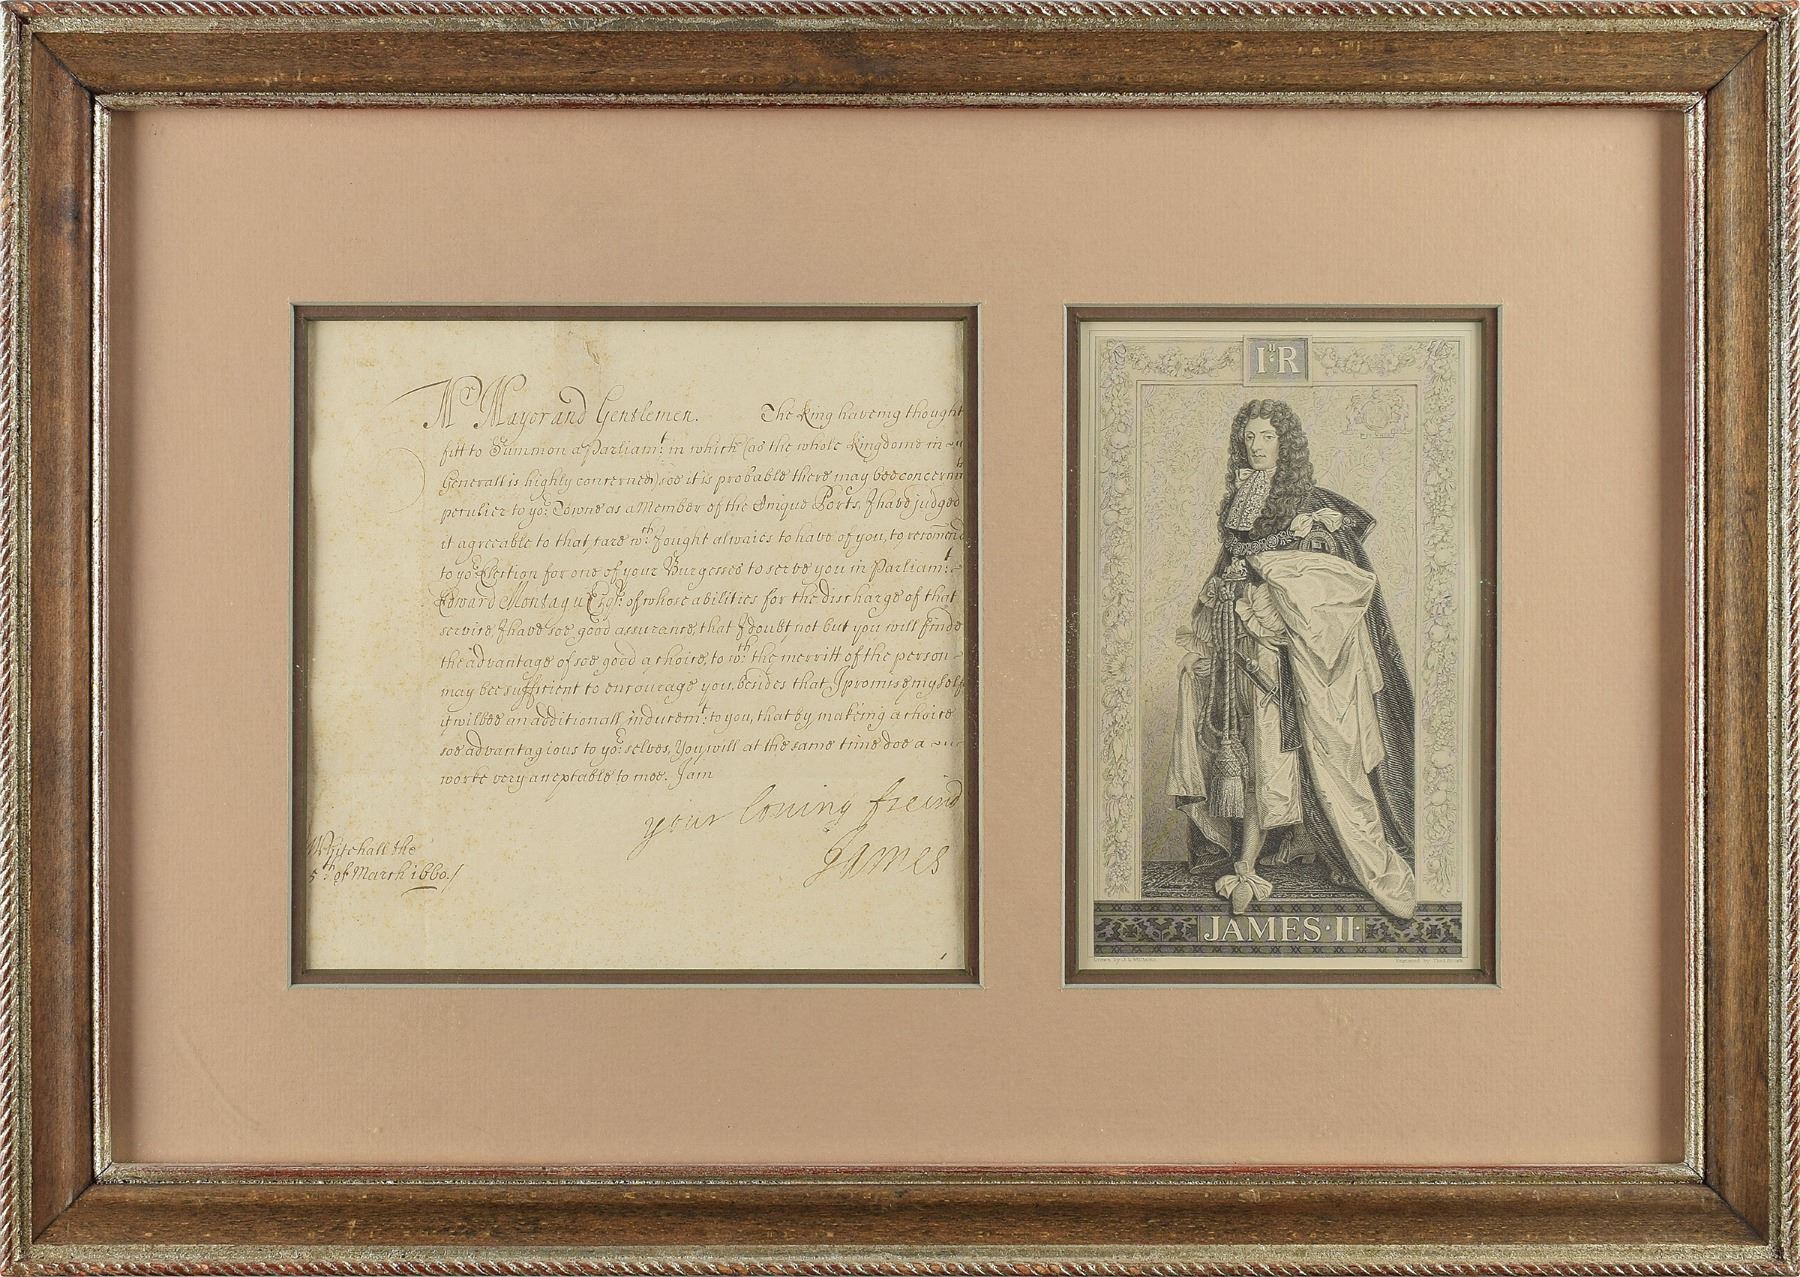 Mr Mayor and Gentlemen. The King haveing thought
fitt to Summon a Parliamt: in which (as the whole Kingdome in
Generall is highly concerned) soe it is probable there may bee concernmts
peculier to yor: Towne as a Member of the Cinque Ports, I have judged
it agreeable to that care wch: I ought alwaies to have of you, to recomend
to yor: Election for one of your Burgesses to serve you in Parliamt:
Edward Montagu Esqr: of whose abilities for the discharge of that
service, I have soe good assurance, that I doubt not but you will finde
the advantage of soe good a choice, to wch: the merritt of the person
may bee sufficient to encourage you, besides that I promise my self
it wilbee an additionall inducemt: to you, that by makeing a choice
soe advantagious to yor: selves, You will at the same time doe a
worke very acceptable to mee. I am
your loving freind
James
Whitehall the
5th: of March 1660/
I II R
JAMES·II·
Drawn by J. L. Williams
Engraved by Thos. Brown